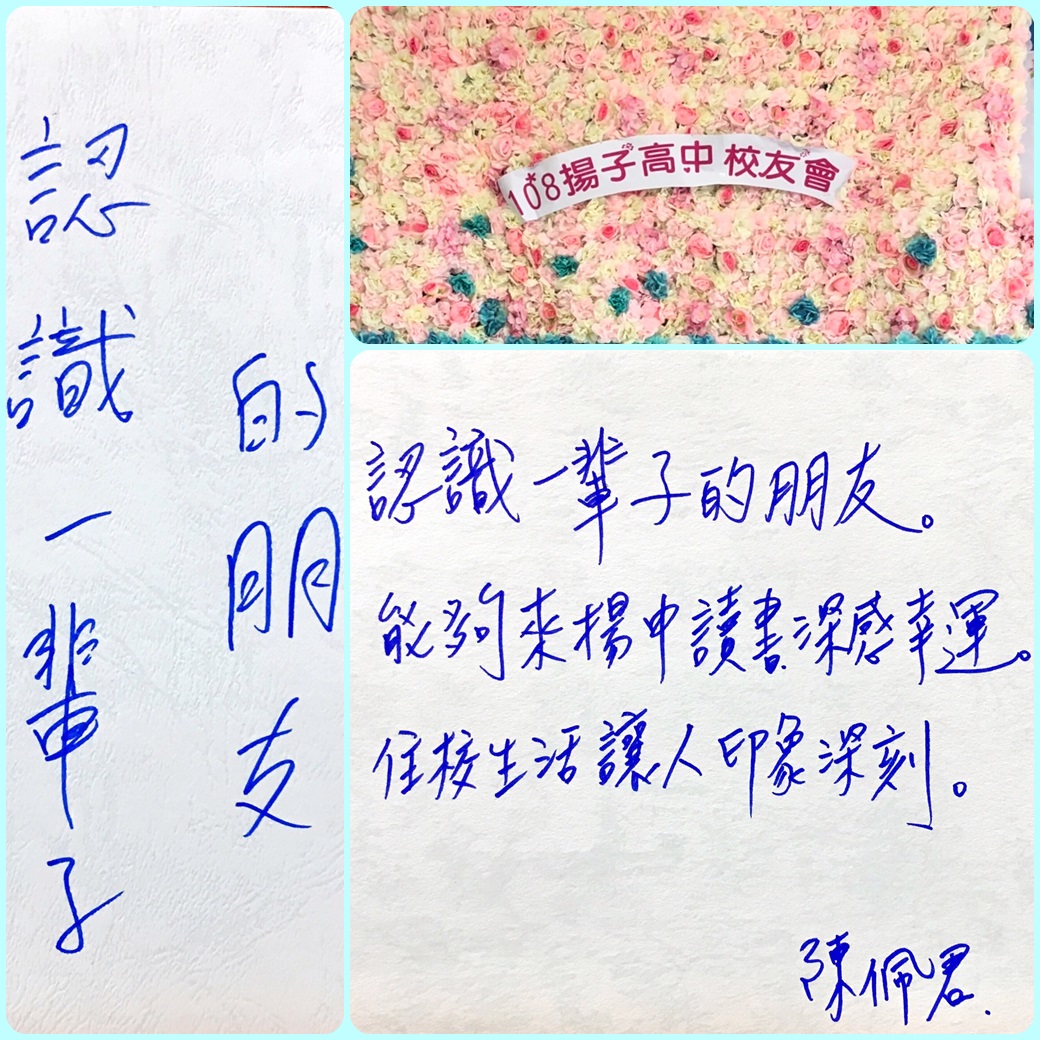 認識一輩子
的朋友
108揚子高中校友會
認識一輩子的朋友。
能夠來揚中讀書深感幸運。
住校生活讓人印象深刻。
陳佩君.